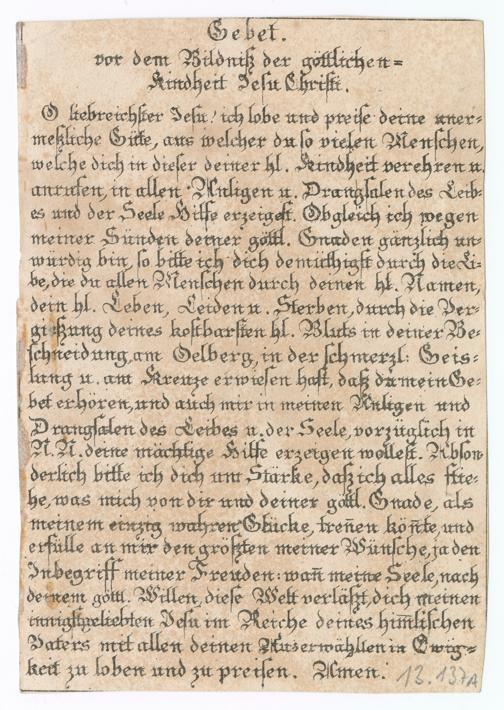 Gebet.
vor dem Bildniß der göttlichen=
Kindheit Jesu Christi.
O liebreichster Jesu! ich lobe und preise deine uner-
meßliche Güte, aus welcher du so vielen Menschen,
welche dich in dieser deiner hl. Kindheit verehren u.
anrufen, in allen Anligen u. Drangsalen des Leib-
es und der Seele Hilfe erzeigest. Obgleich ich wegen
meiner Sünden deiner göttl. Gnaden gänzlich un-
würdig bin, so bitte ich dich demüthigst durch die Li-
be, die du allen Menschen durch deinen hl. Namen,
dein hl. Leben, Leiden u. Sterben, durch die Ver-
gißung deines kostbarsten hl. Bluts in deiner Be-
schneidung, am Oelberg, in der schmerzl: Geis-
lung u. am Kreuze erwiesen hast, daß du mein Ge-
bet erhören, und auch mir in meinen Anligen und
Drangsalen des Leibes u. der Seele, vorzüglich in
N.N. deine mächtige Hilfe erzeigen wollest. Abson-
derlich bitte ich dich um Stärke, daß ich alles flie-
he, was mich von dir und deiner göttl. Gnade, als
meinem einzig wahren Glücke, treñen köñte, und
erfülle an mir den größten meiner Wünsche, ja den
Inbegriff meiner Freuden: wañ meine Seele, nach
deinem göttl. Willen, diese Welt verläßt, dich meinen
innigstgeliebten Jesu im Reiche deines him̄lischen
Vaters mit allen deinen Auserwählten in Ewig=
keit zu loben und zu preisen. Amen. 13.137A